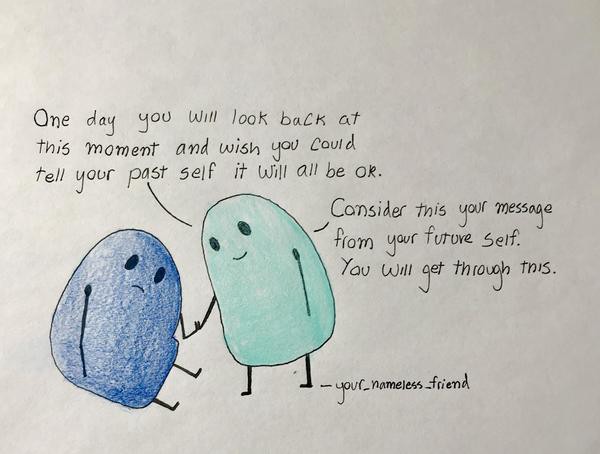 One day you will look back at
this moment and wish you could
tell your past self it will all be ok.
Consider this your message
from your future self.
You will get through this.
your_nameless_friend